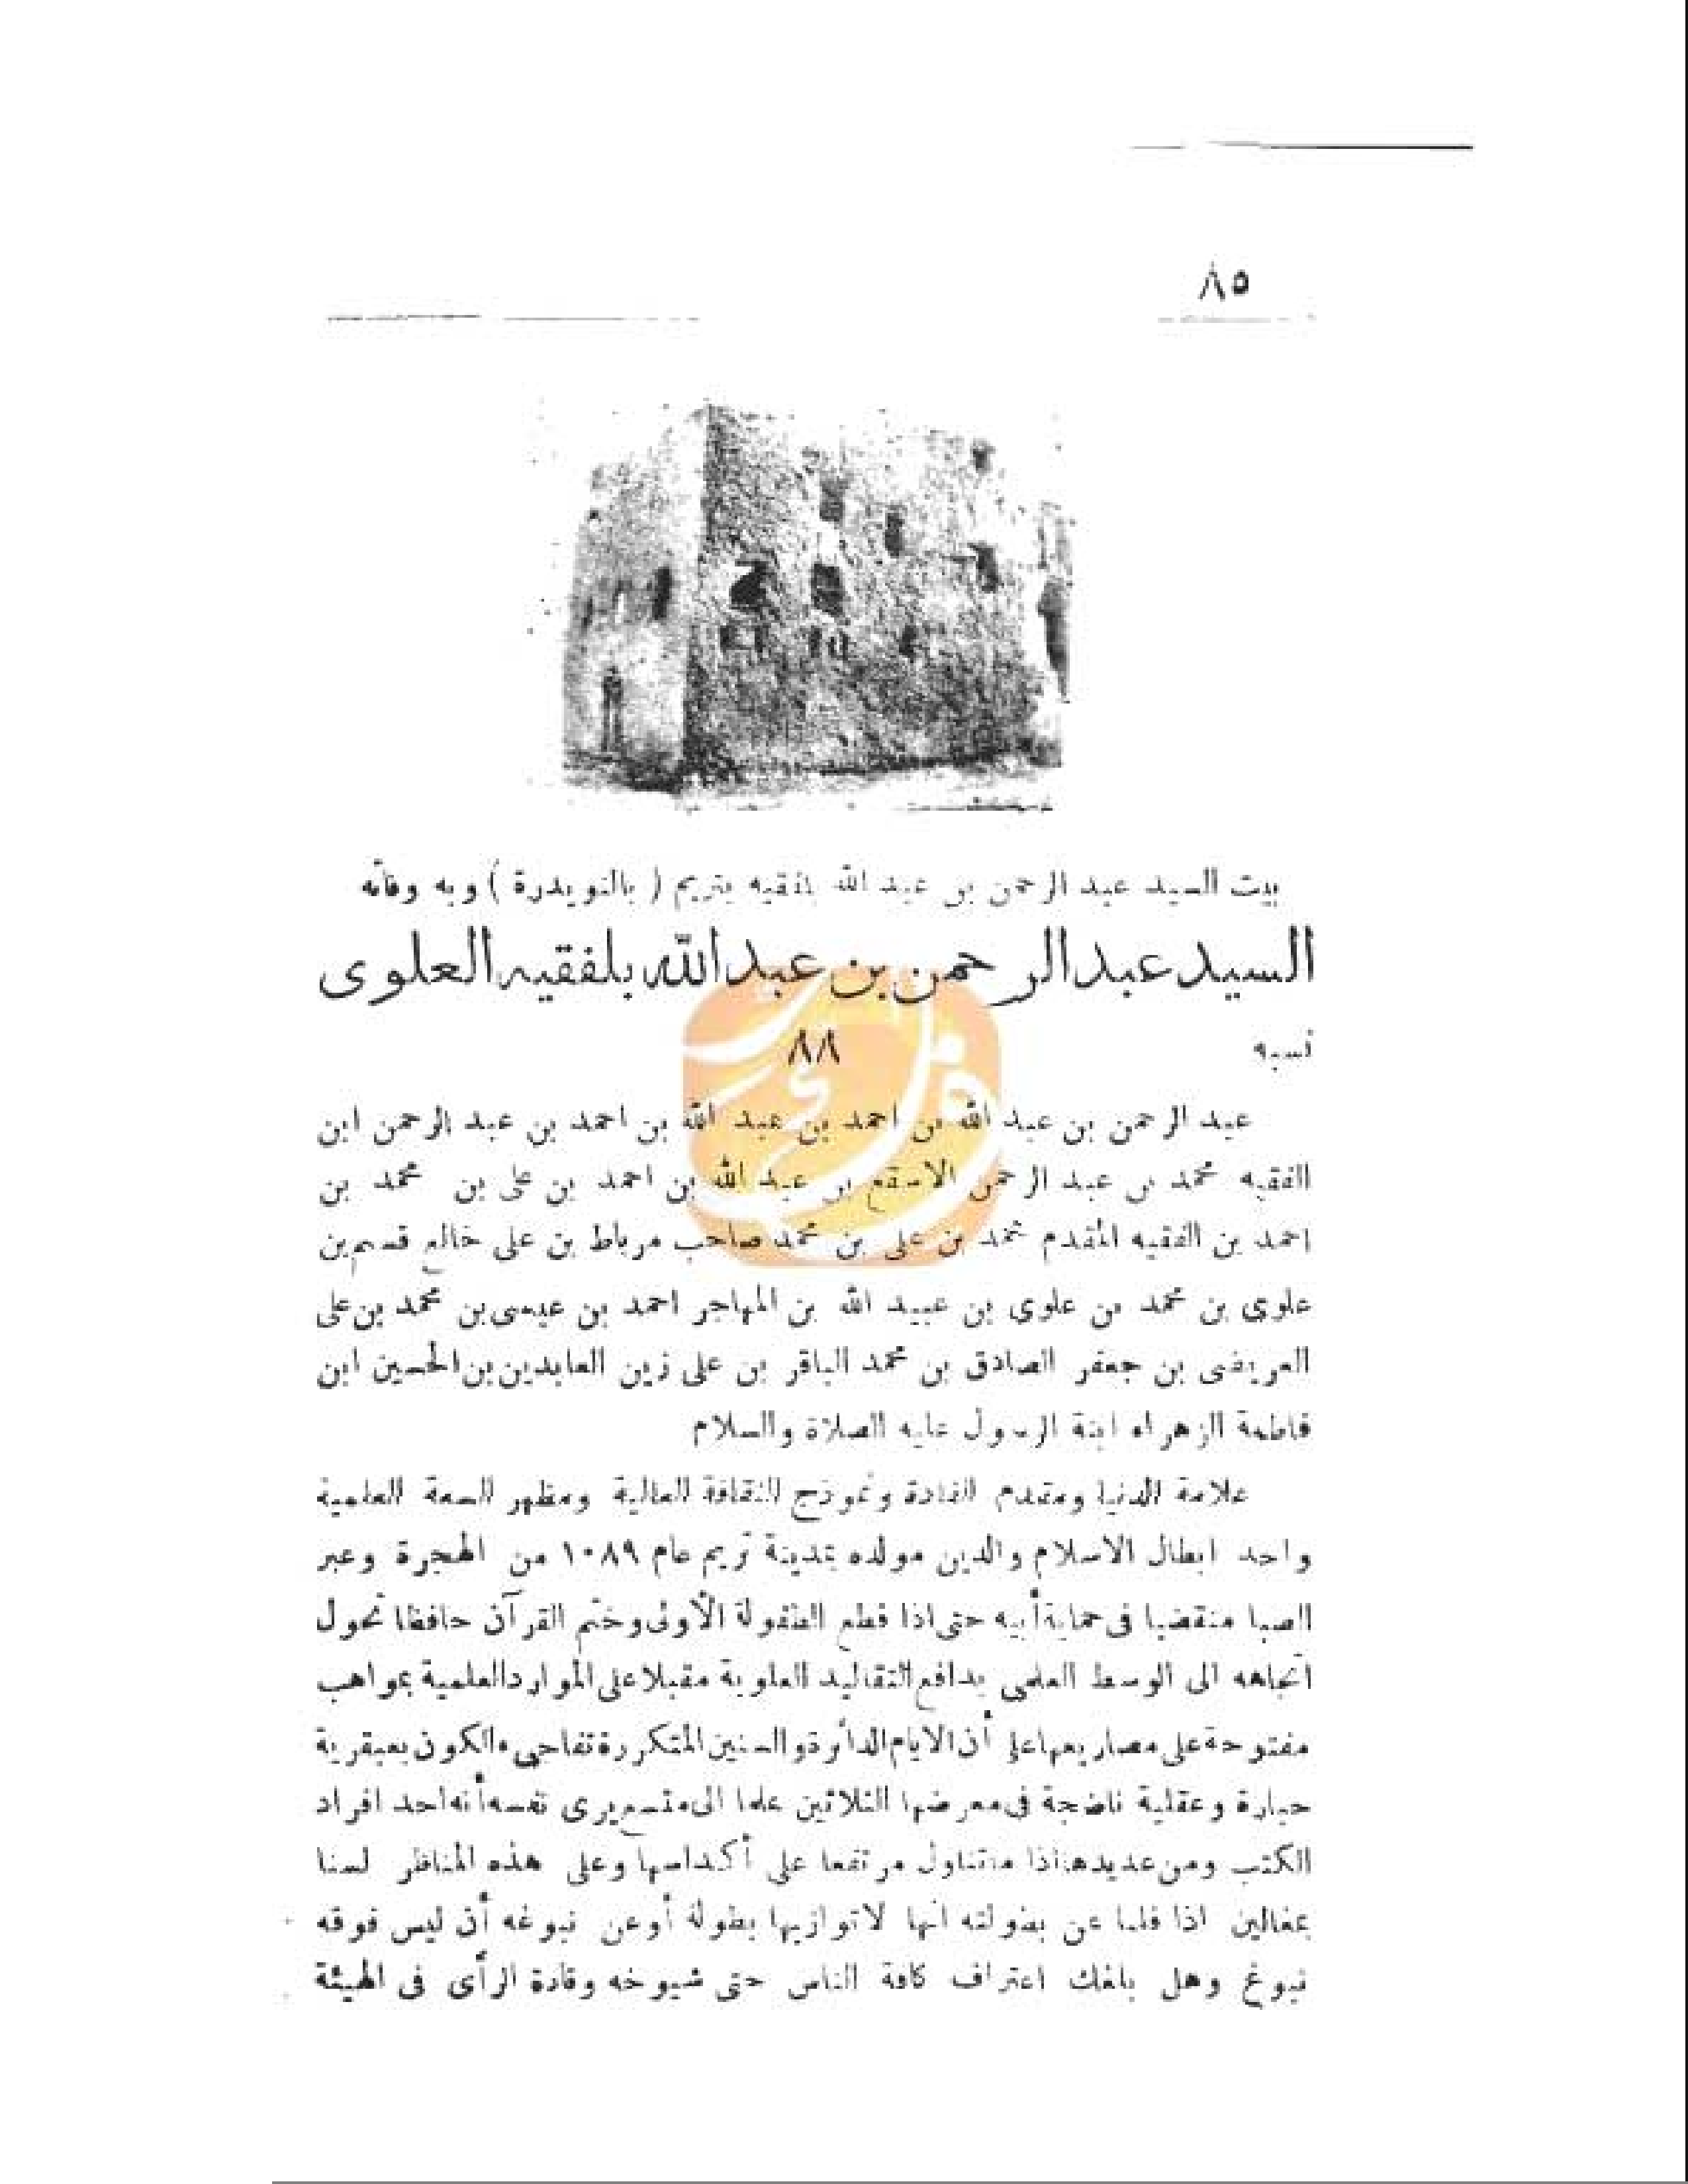 ٨٥
بيت السيد عبد الرحمن بن عبد الله بلفقيه بتريم ( بالنويدرة ) وبه وفاته
السيد عبد الرحمن بن عبد الله بلفقيه العلوى
٨٨
نسبه
عبد الرحمن بن عبد الله بن احمد بن عبد الله بن احمد بن عبد الرحمن ابن
الفقيه محمد بن عبد الرحمن الاسقع بن عبد الله بن احمد بن على بن محمد بن
احمد بن الفقيه المقدم محمد بن على بن محمد صاحب مرباط بن على خالع قسم بن
علوى بن محمد بن علوى بن عبيد الله بن المهاجر احمد بن عيسى بن محمد بن على
العريضى بن جعفر الصادق بن محمد الباقر بن على زين العابدين بن الحسين ابن
فاطمة الزهراء ابنة الرسول عليه الصلاة والسلام
علامة الدنيا ومقدم القادة ونموذج الثقافة العالية ومظهر السعة العلمية
واحد ابطال الاسلام والدين مولده بمدينة تريم عام ١٠٨٩ من الهجرة وعبر
الصبا منقضيا فى حماية أبيه حتى اذا قطع الطفولة الأولى وختم القرآن حافظا تحول
اتجاهه الى الوسط العلمى بدافع التقاليد العلوية مقبلا على الموارد العلمية بمواهب
مفتوحة على مصاريعها على أن الايام الدائرة والسنين المتكررة تفاجىء الكون بعبقرية
جبارة وعقلية ناضجة فى معرضها الثلاثين علما الى متسع يرى نفسه أنه احد افراد
الكتب ومن عديدها اذا ماتناول مرتفعا على أكداسها وعلى هذه المناظر لسنا
بمغالين اذا قلنا عن بطولته انها لاتوازيها بطولة أو عن نبوغه أن ليس فوقه
نبوغ وهل بلغك اعتراف كافة الناس حتى شيوخه وقادة الرأى فى الهيئة